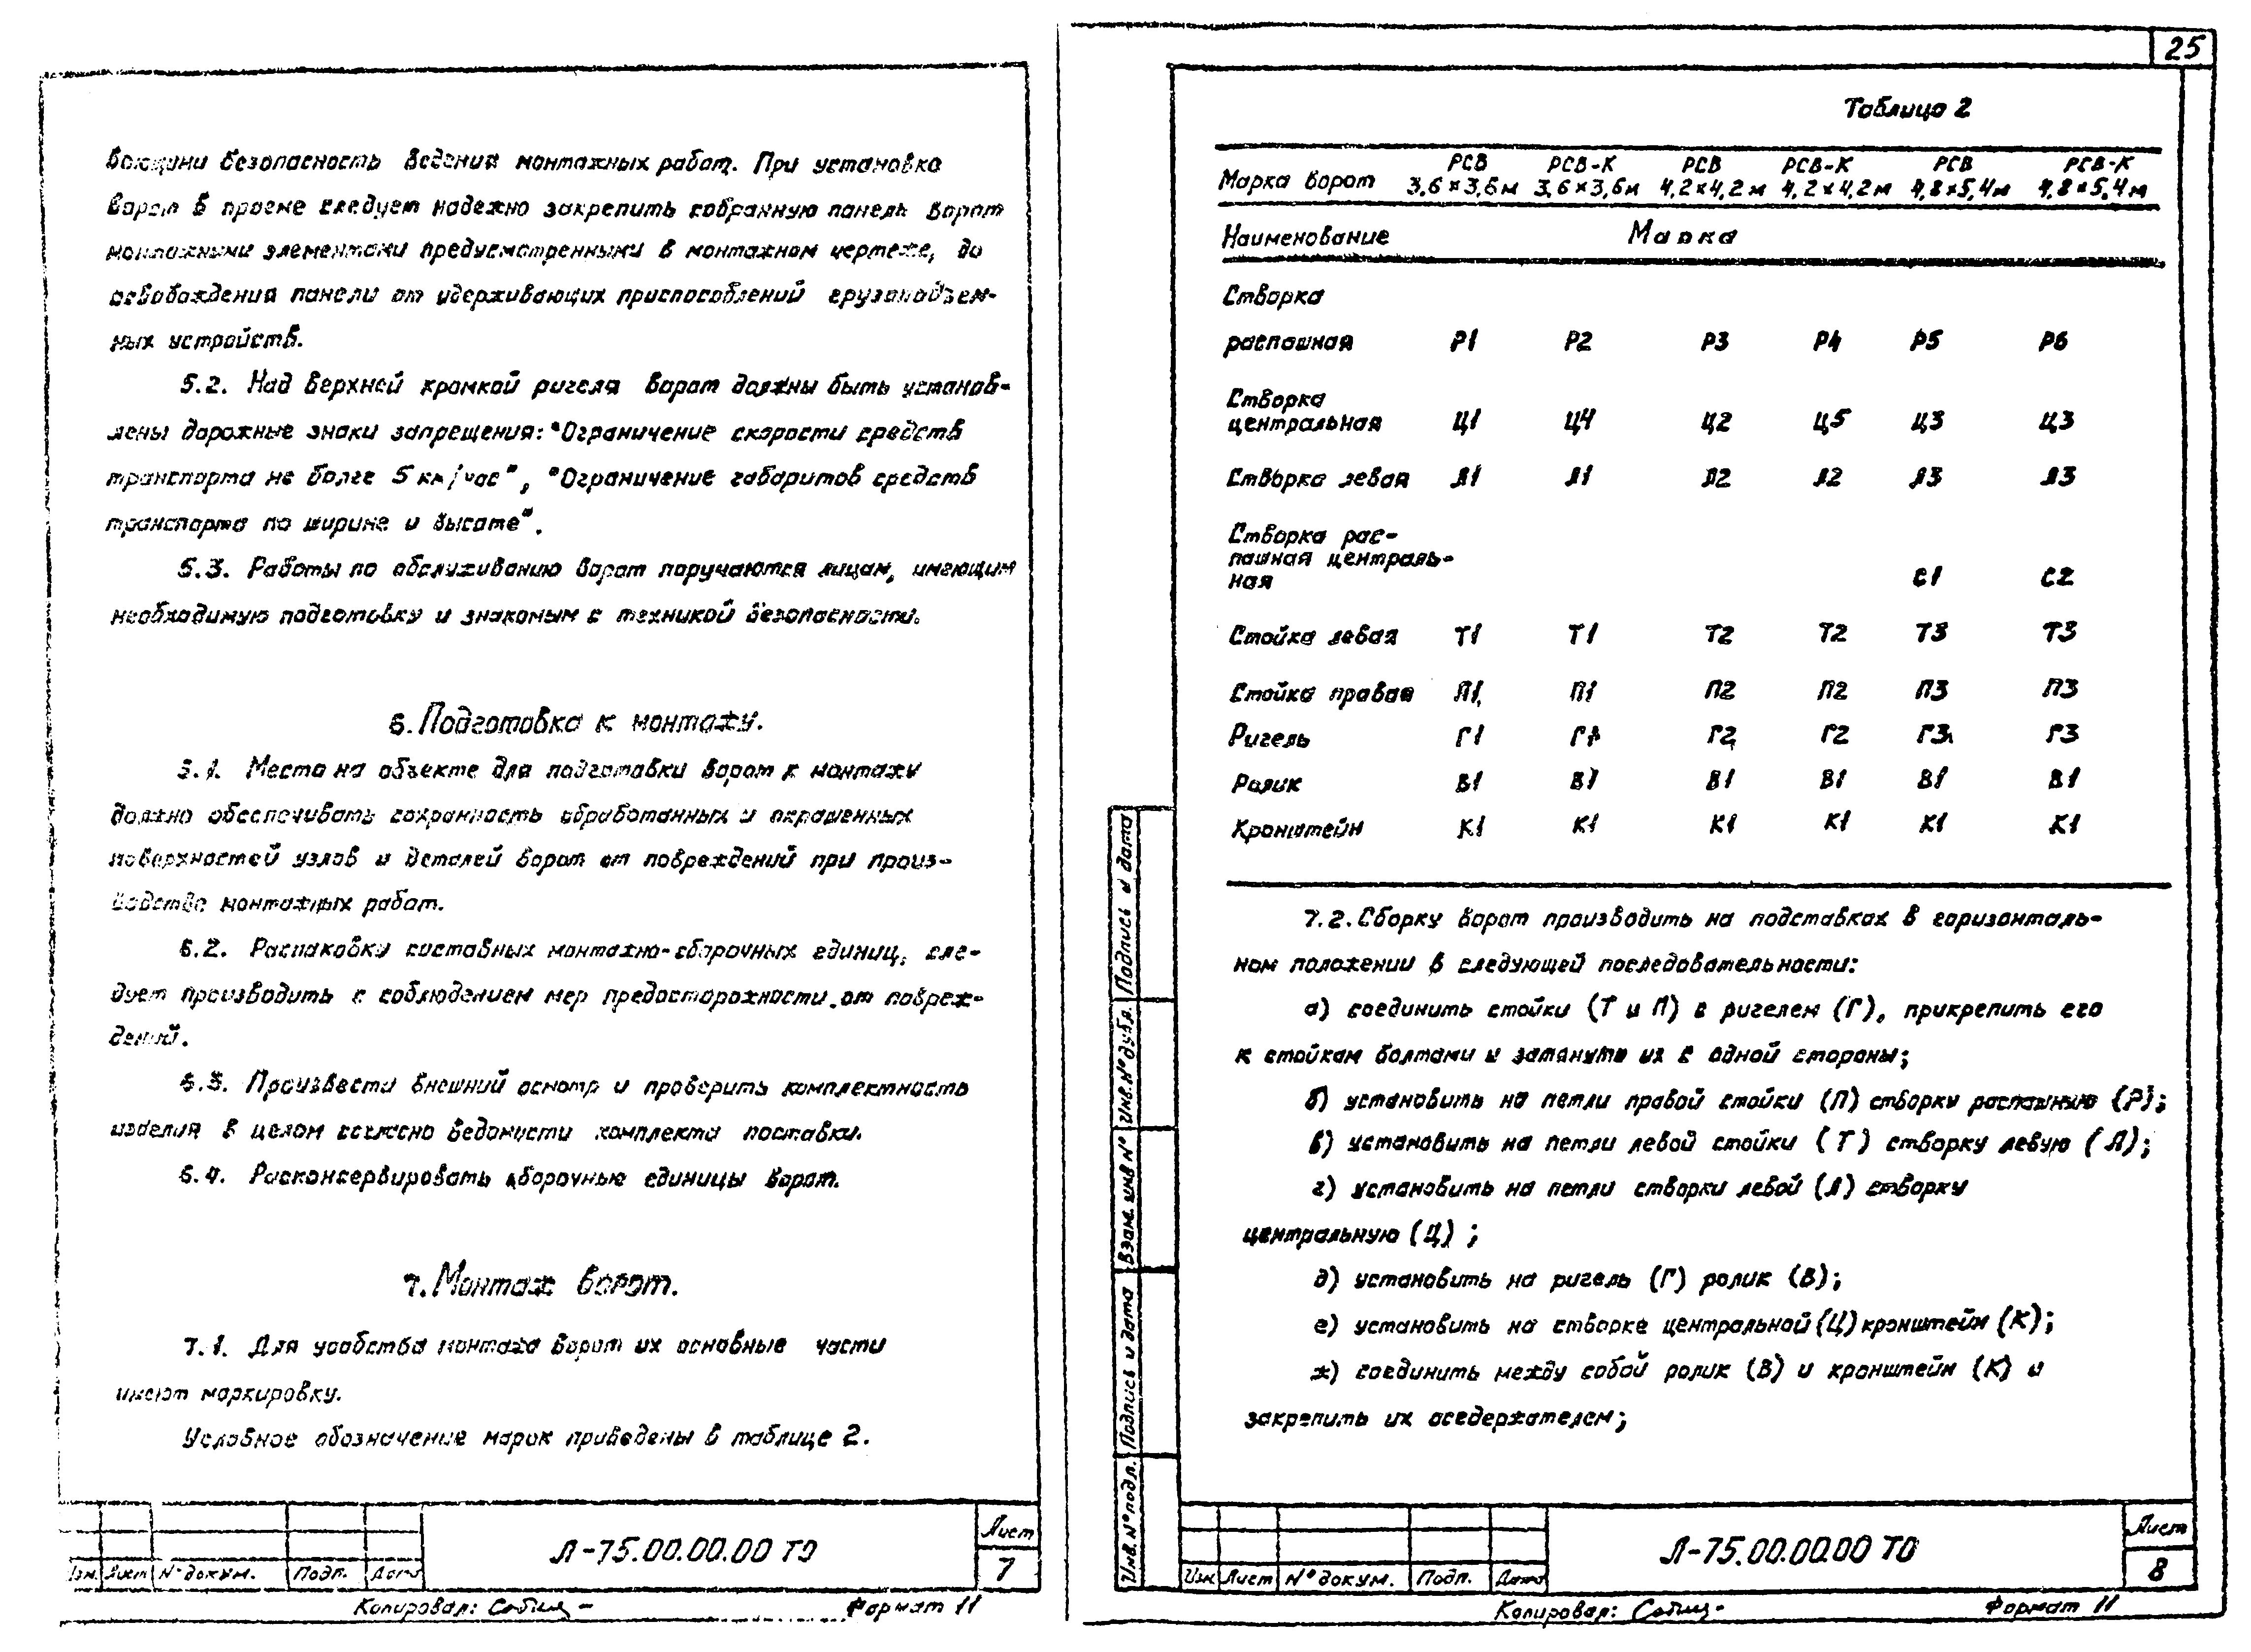 безопасность ведения монтажных работ. При установке
ворот в проеме следует надежно закрепить собранную панель ворот
монтажными элементами предусмотренными в монтажном чертеже, до
освобождения панели от удерживающих приспособлений грузоподъем-
ных устройств.
5.2. Над верхней кромкой ригеля ворот должны быть установ-
лены дорожные знаки запрещения: "Ограничение скорости средств
транспорта не более 5 км/час", "Ограничение габаритов средств
транспорта по ширине и высоте".
5.3. Работы по обслуживанию ворот поручаются лицам, имеющим
необходимую подготовку и знакомым с техникой безопасности.
6. Подготовка к монтажу.
6.1. Место на объекте для подготовки ворот к монтажу
должно обеспечивать сохранность обработанных и окрашенных
поверхностей узлов и деталей ворот от повреждений при произ-
водстве монтажных работ.
6.2. Распаковку составных монтажно-сборочных единиц, сле-
дует производить с соблюдением мер предосторожности от повреж-
дений.
6.3. Произвести внешний осмотр и проверить комплектность
изделия в целом согласно ведомости комплекта поставки.
6.4. Расконсервировать сборочные единицы ворот.
7. Монтаж ворот.
7.1. Для удобства монтажа ворот их основные части
имеют маркировку.
Условное обозначение марок приведены в таблице 2.
Л-75.00.00.00 ТО
Лист
7
Изм. Лист № докум. Подп. Дата
Копировал:
Формат 11
25
Таблица 2
Марка ворот РСВ 3,6×3,6м РСВ-К 3,6×3,6м РСВ 4,2×4,2м РСВ-К 4,2×4,2м РСВ 4,8×5,4м РСВ-К 4,8×5,4м
Наименование Марка
Створка
распашная Р1 Р2 Р3 Р4 Р5 Р6
Створка
центральная Ц1 Ц4 Ц2 Ц5 Ц3 Ц3
Створка левая Л1 Л1 Л2 Л2 Л3 Л3
Створка рас-
пашная централь-
ная С1 С2
Стойка левая Т1 Т1 Т2 Т2 Т3 Т3
Стойка правая П1 П1 П2 П2 П3 П3
Ригель Г1 Г1 Г2 Г2 Г3 Г3
Ролик В1 В1 В1 В1 В1 В1
Кронштейн К1 К1 К1 К1 К1 К1
7.2. Сборку ворот производить на подставках в горизонталь-
ном положении в следующей последовательности:
а) соединить стойки (Т и П) с ригелем (Г), прикрепить его
к стойкам болтами и затянуть их с одной стороны;
б) установить на петли правой стойки (П) створку распашную (Р);
в) установить на петли левой стойки (Т) створку левую (Л);
г) установить на петли створки левой (Л) створку
центральную (Ц);
д) установить на ригель (Г) ролик (В);
е) установить на створке центральной (Ц) кронштейн (К);
ж) соединить между собой ролик (В) и кронштейн (К) и
закрепить их оседержателем;
Инв. № подл. Подпись и дата Взам. инв № Инв. № дубл. Подпись и дата
Л-75.00.00.00 ТО
Лист
8
Изм Лист № докум. Подп. Дата
Копировал:
Формат 11